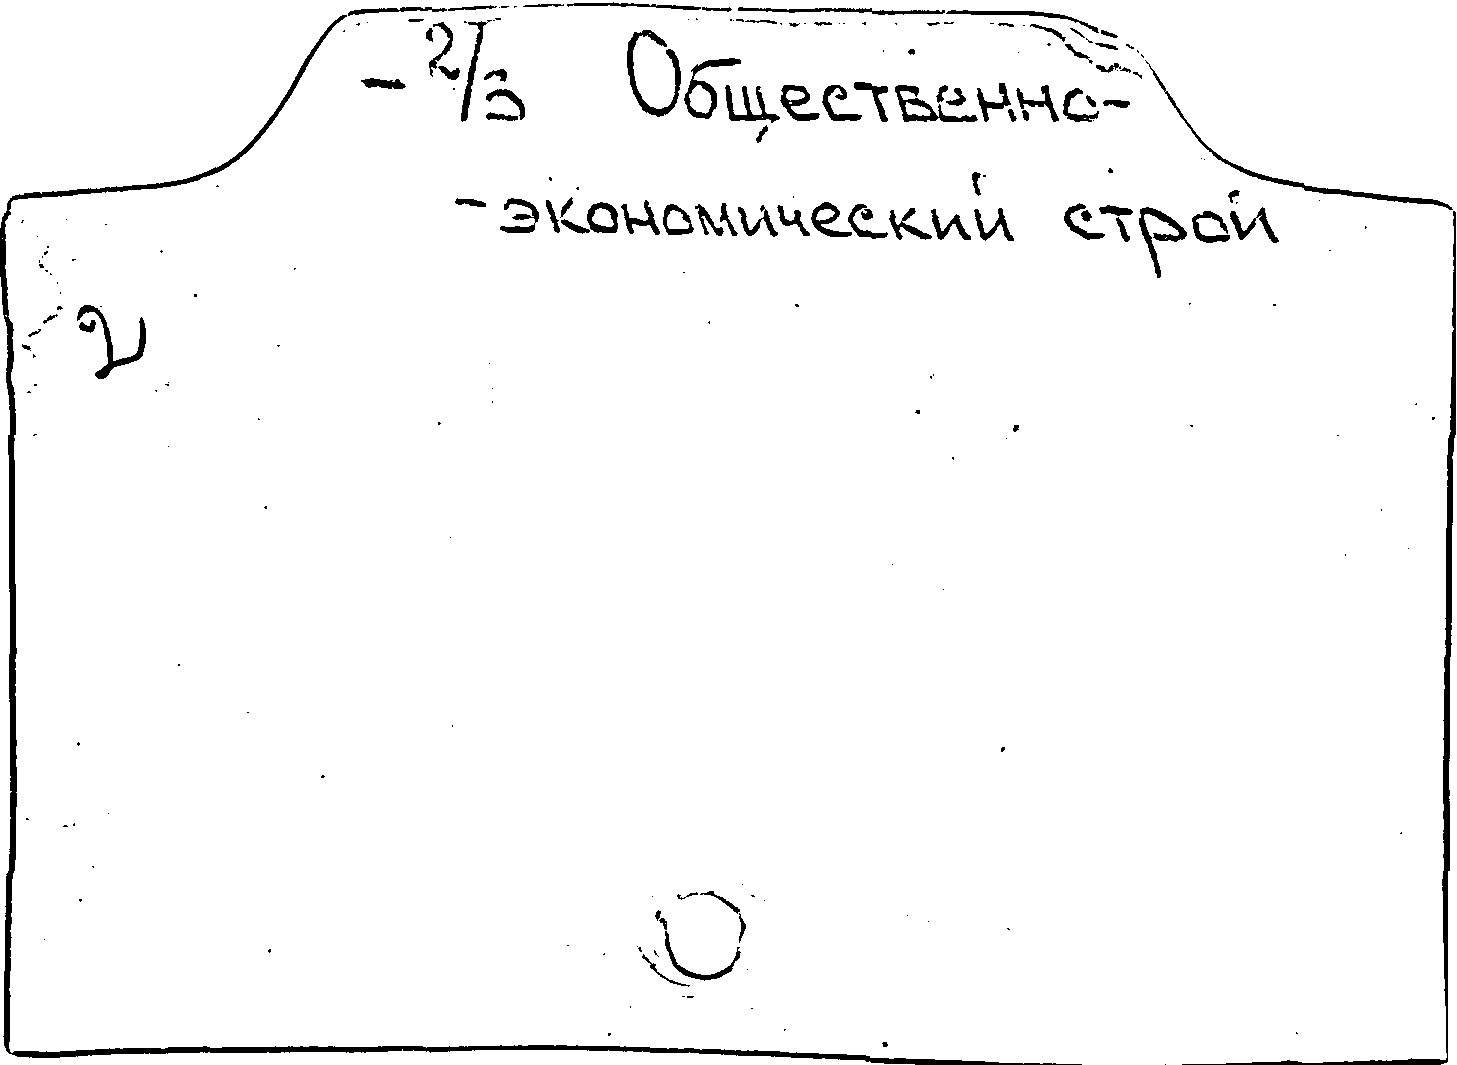 -2/3 Общественно-
-экономический строй
2